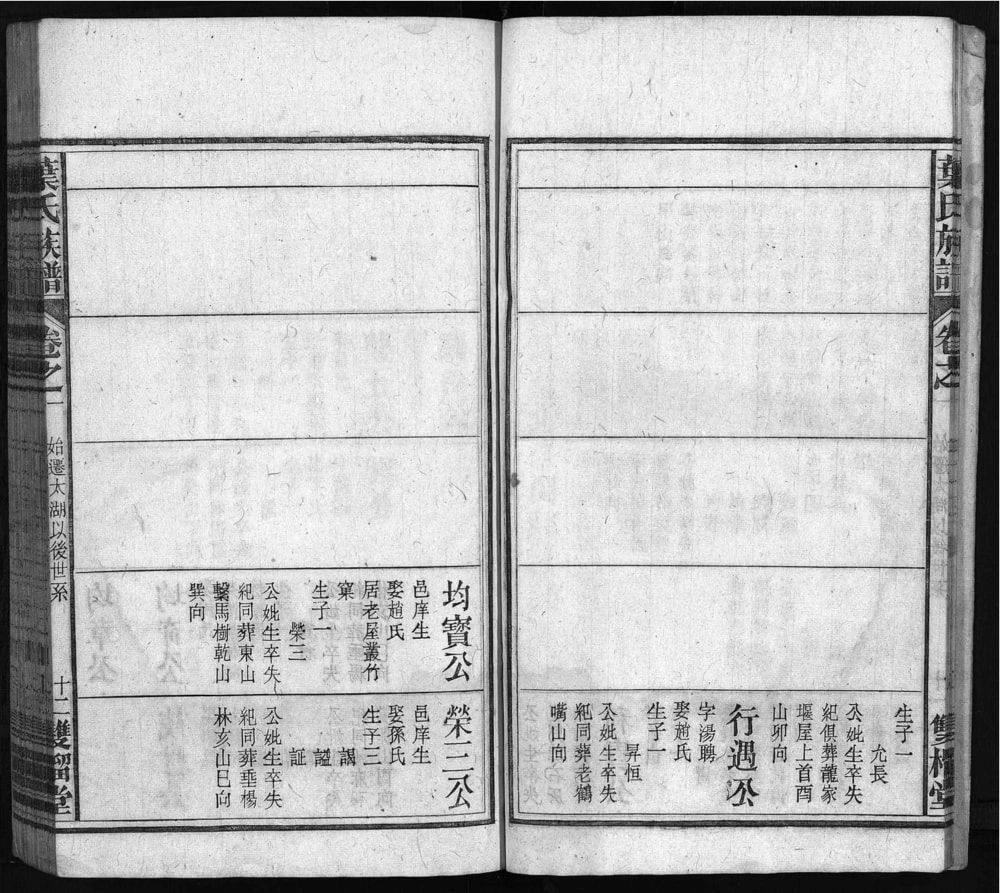 葉氏族譜
卷之一
生子一
允長
公妣生卒失
紀俱葬龍家
堰屋上首酉
山卯向
行遇公
字湯聘
娶趙氏
生子一
昇恒
公妣生卒失
紀同葬老鶴
嘴山向
均寶公
邑庠生
娶趙氏
居老屋叢竹
窠
生子一
榮三
公妣生卒失
紀同葬東山
繫馬樹乾山
巽向
榮三公
邑庠生
娶孫氏
生子三
謨
謚
証
公妣生卒失
紀同葬垂楊
林亥山巳向
葉氏族譜
卷之一
始遷太湖以後世系
十二
雙溜堂